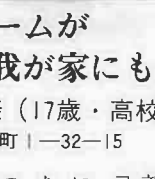 ームが
我が家にも
（17歳・高校
町1―32―15